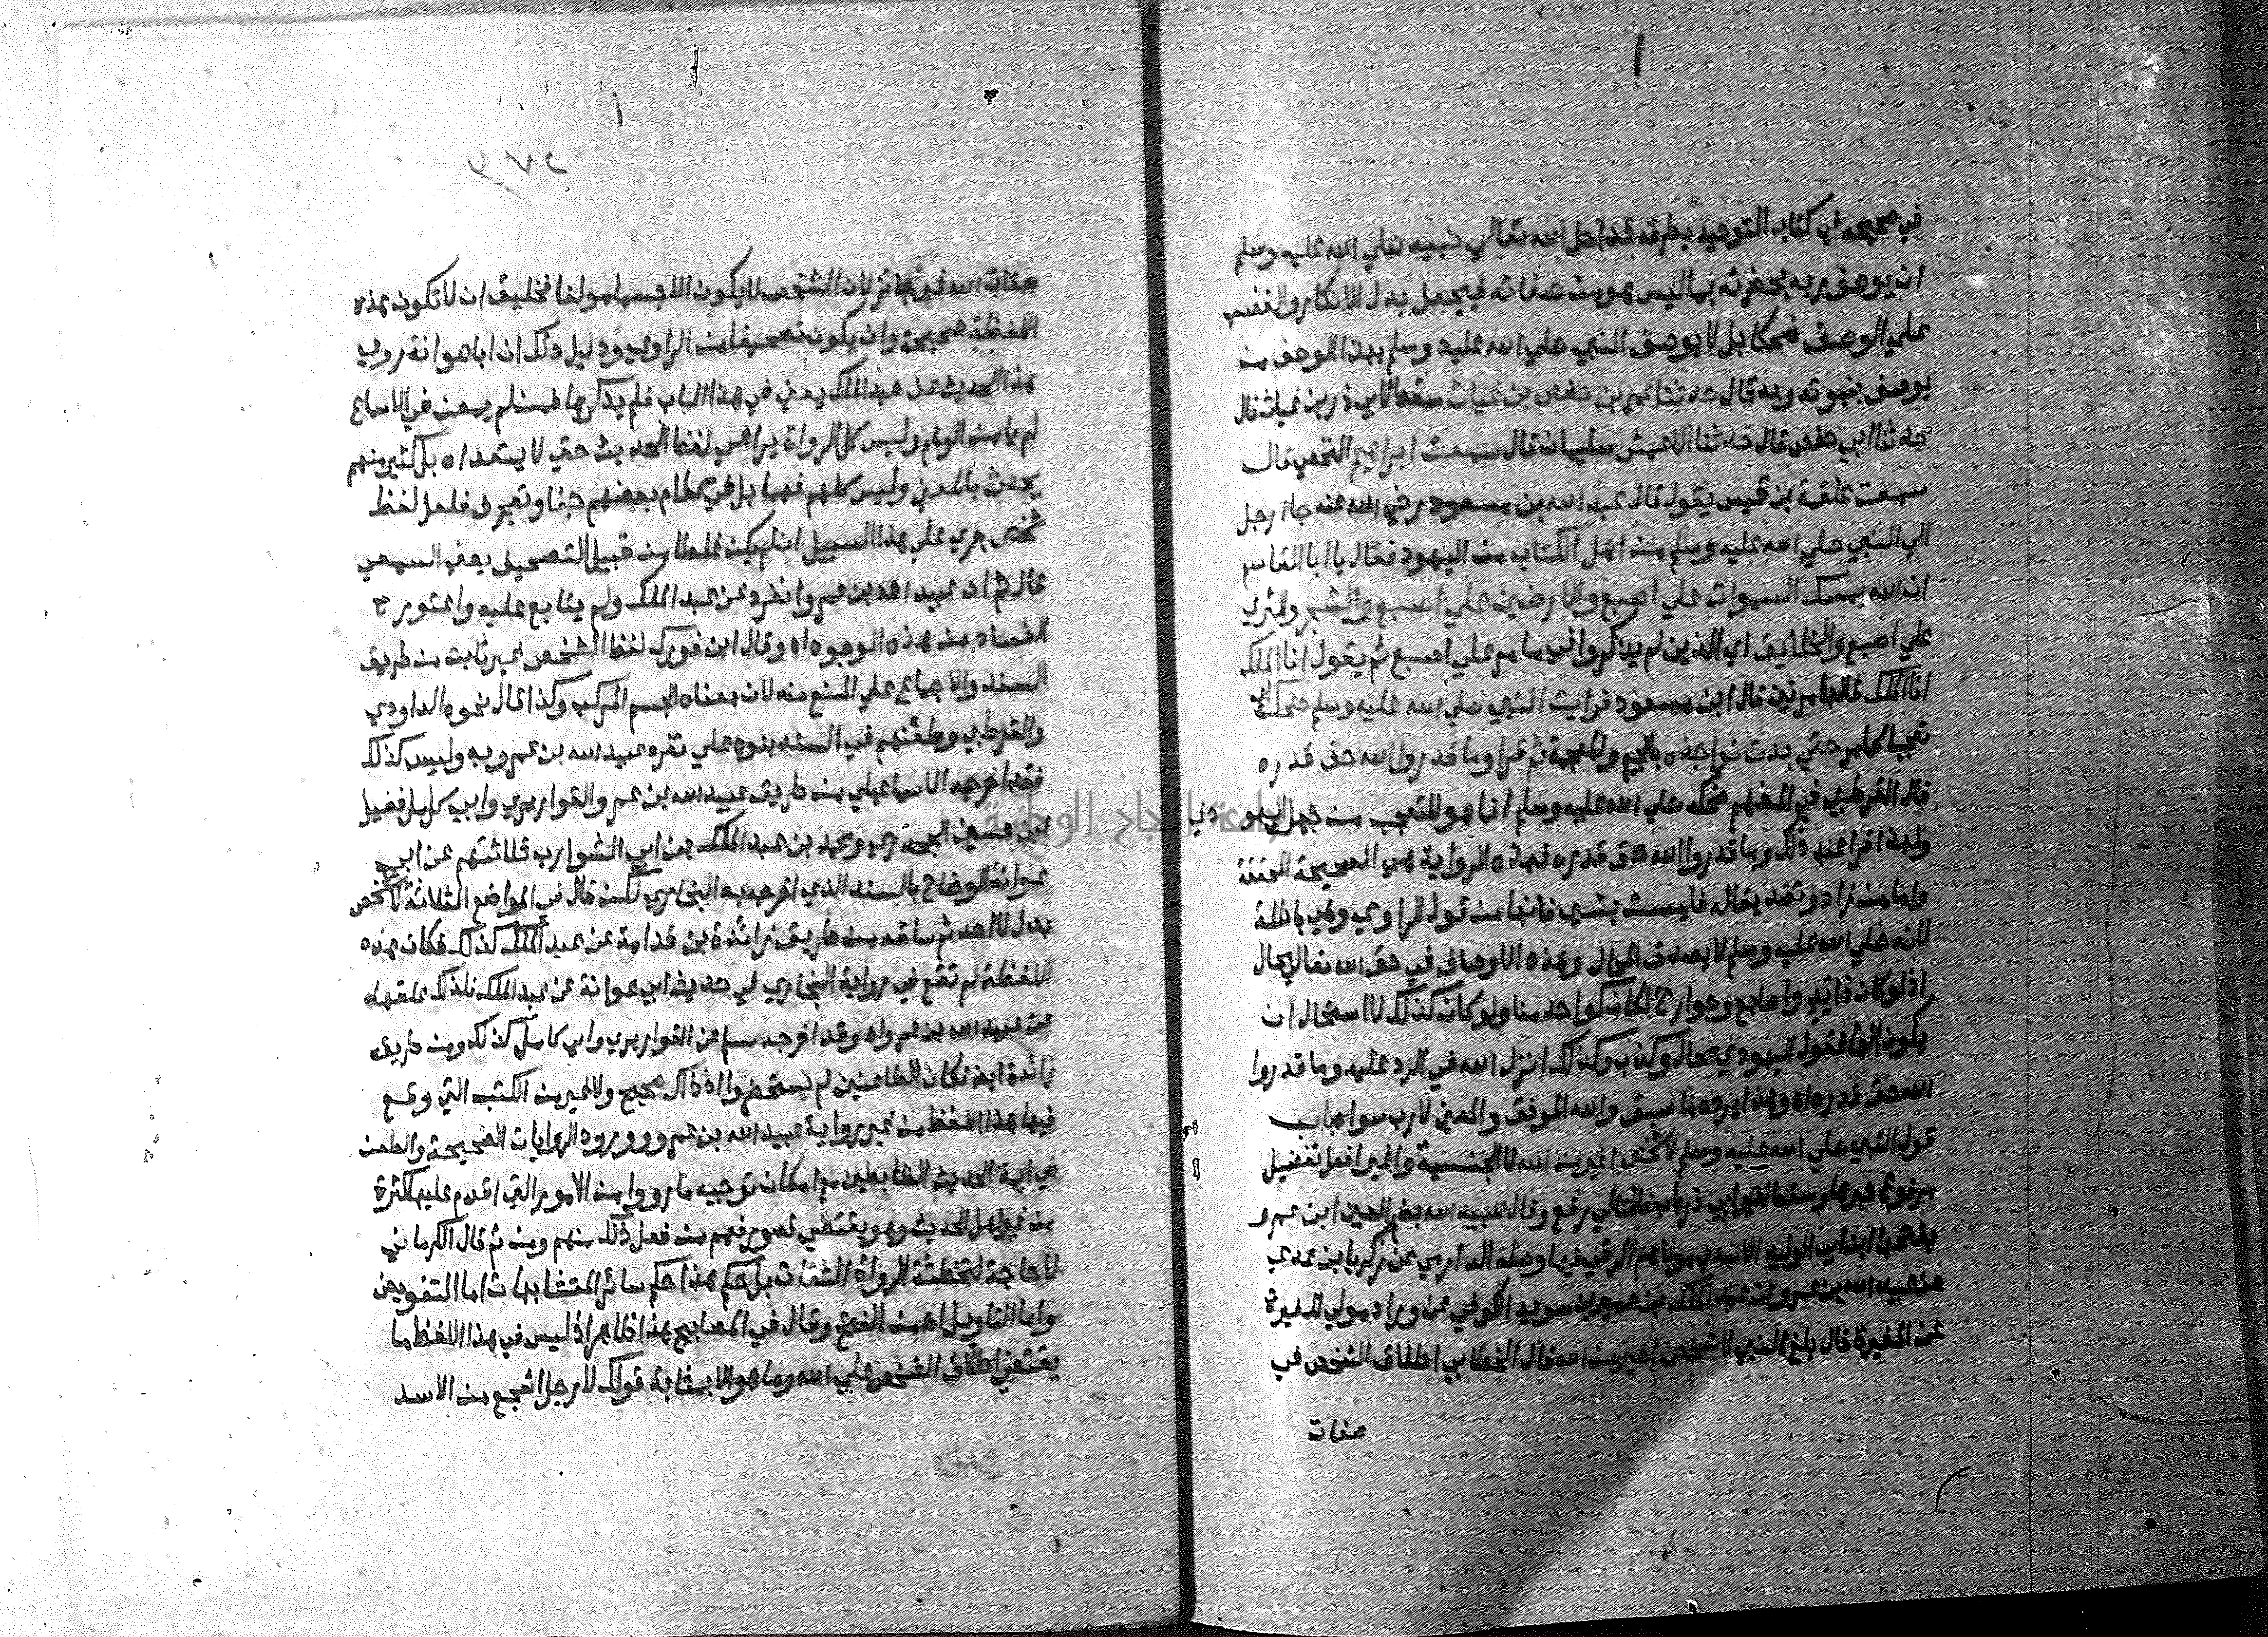 في صحيحه في كتاب التوحيد بطرقه قد اجل الله تعالي نبيه صلي الله عليه وسلم
ان يوصف ربه بحضرته بما ليس هو من صفاته فيجعل بدل الانكار والغضب
علي الوصف ضحكا بل لا يوصف النبي صلي الله عليه وسلم بهذا الوصف من
يومن بنبوته وبه قال حدثنا عمر بن حفص بن غياث سقط لابي ذر بن غياث قال
حدثنا ابي حفص قال حدثنا الاعمش سليمان قال سمعت ابراهيم النخعي قال
سمعت علقمة بن قيس يقول قال عبد الله بن مسعود رضي الله عنه جاء رجل
الي النبي صلي الله عليه وسلم من اهل الكتاب من اليهود فقال يا ابا القاسم
ان الله يمسك السموات علي اصبع والارضين علي اصبع والشجر والثري
علي اصبع والخلايق اي الذين لم يذكروا فيما مر علي اصبع ثم يقول انا الملك
انا الملك قالها مرتين قال ابن مسعود فرايت النبي صلي الله عليه وسلم ضحك اي
تعجبا كما مر حتي بدت نواجذه بالجيم والمعجمة ثم قرا وما قدروا الله حق قدره
قال القرطبي في المفهم ضحكه صلي الله عليه وسلم انما هو للتعجب من جهل اليهودي
ولهذا قرا عند ذلك وما قدروا الله حق قدره فهذه الرواية هي الصحيحة المحققة
واما من زاد وتصديقا له فليست بشي فانها من قول الراوي وهي باطلة
لانه صلي الله عليه وسلم لا يصدق المحال وهذه الاوصاف في حق الله تعالي محال
اذ لو كان ذا يد واصابع وجوارح لكان كواحد منا ولو كان كذلك لاستحال ان
يكون الها فقول اليهودي محال وكذب ولذلك انزل الله في الرد عليه وما قدروا
الله حق قدره اه وهذا يرده ما سبق والله الموفق والمعين لا رب سواه باب
قول النبي صلي الله عليه وسلم لا شخص اغير من الله لا الجنسية واغير افعل تفضيل
مرفوع خبرها وسقط لغير ابي ذر باب فالتالي رفع وقال عبيد الله بضم العين ابن عمرو
بفتحها ابن ابي الوليد الاسدي مولاهم الرقي فيما وصله الدارمي عن زكريا بن عدي
عن عبيد الله بن عمرو عن عبد الملك بن عمير بن سويد الكوفي عن وراد مولي المغيرة
عن المغيرة قال بلغ النبي لا شخص اغير من الله قال الخطابي اطلاق الشخص في
صفات
صفات الله غير جائز لان الشخص لا يكون الا جسما مولفا فخليق ان لا تكون هذه
اللفظة صحيحة وان يكون تصحيفا من الراوي ودليل ذلك ان ابا عوانة روي
هذا الحديث عن عبد الملك يعني في هذا الباب فلم يذكرها فمن لم يمعن في الاستماع
لم يامن الوهم وليس كل الرواة يراعي لفظ الحديث حتي لا يتعداه بل كثير منهم
يحدث بالمعني وليس كلهم فهما بل في كلام بعضهم جفا وتعجرف فلعل لفظ
شخص جري علي هذا السبيل ان لم يكن غلطا من قبيل التصحيف يعني السمعي
قال ثم ان عبيد الله بن عمرو انفرد عن عبد الملك ولم يتابع عليه واعتوره
الفساد من هذه الوجوه اه وقال ابن فورك لفظ الشخص غير ثابت من طريق
السند والاجماع علي المنع منه لان معناه الجسم المركب وكذا قال نحوه الداودي
والقرطبي وطعنهم في السند بنوه علي تفرد عبيد الله بن عمرو به وليس كذلك
فقد اخرجه الاسماعيلي من طريق عبيد الله بن عمر والقواريري وابي كامل فضيل
ابن حسين الجحدري ومحمد بن عبد الملك بن ابي الشوارب ثلاثتهم عن ابي
عوانة الوضاح بالسند الذي اخرجه به البخاري لكن قال في المواضع الثلاثة لا شخص
بدل لا احد ثم ساقه من طريق زائدة بن قدامة عن عبد الملك كذلك فكان هذه
اللفظة لم تقع في رواية البخاري في حديث ابي عوانة عن عبد الملك فلذلك علقها
عن عبيد الله بن عمرو اه وقد اخرجه مسلم عن القواريري وابي كامل كذلك ومن طريق
زائدة ايضا فكان الطاعنين لم يستحضروا اذ ذاك صحيح ولا غيره من الكتب التي وقع
فيها هذا اللفظ من غير رواية عبيد الله بن عمرو وورود الروايات الصحيحة والطعن
في اية الحديث الضابطين مع امكان توجيه ما رووا من الامور التي اقدم عليها كثرة
من غير اهل الحديث وهو يقتضي قصور فهم من فعل ذلك منهم ومن ثم قال الكرماني
لا حاجة لتخطئة الرواة الثقات بل حكم هذا حكم سائر المتشابهات اما التفويض
واما التاويل اه من الفتح وقال في المصابيح هذا ظاهر اذ ليس في هذا اللفظ ما
يقتضي اطلاق الشخص علي الله وما هو الا بمثابة قولك لا رجل اشجع من الاسد